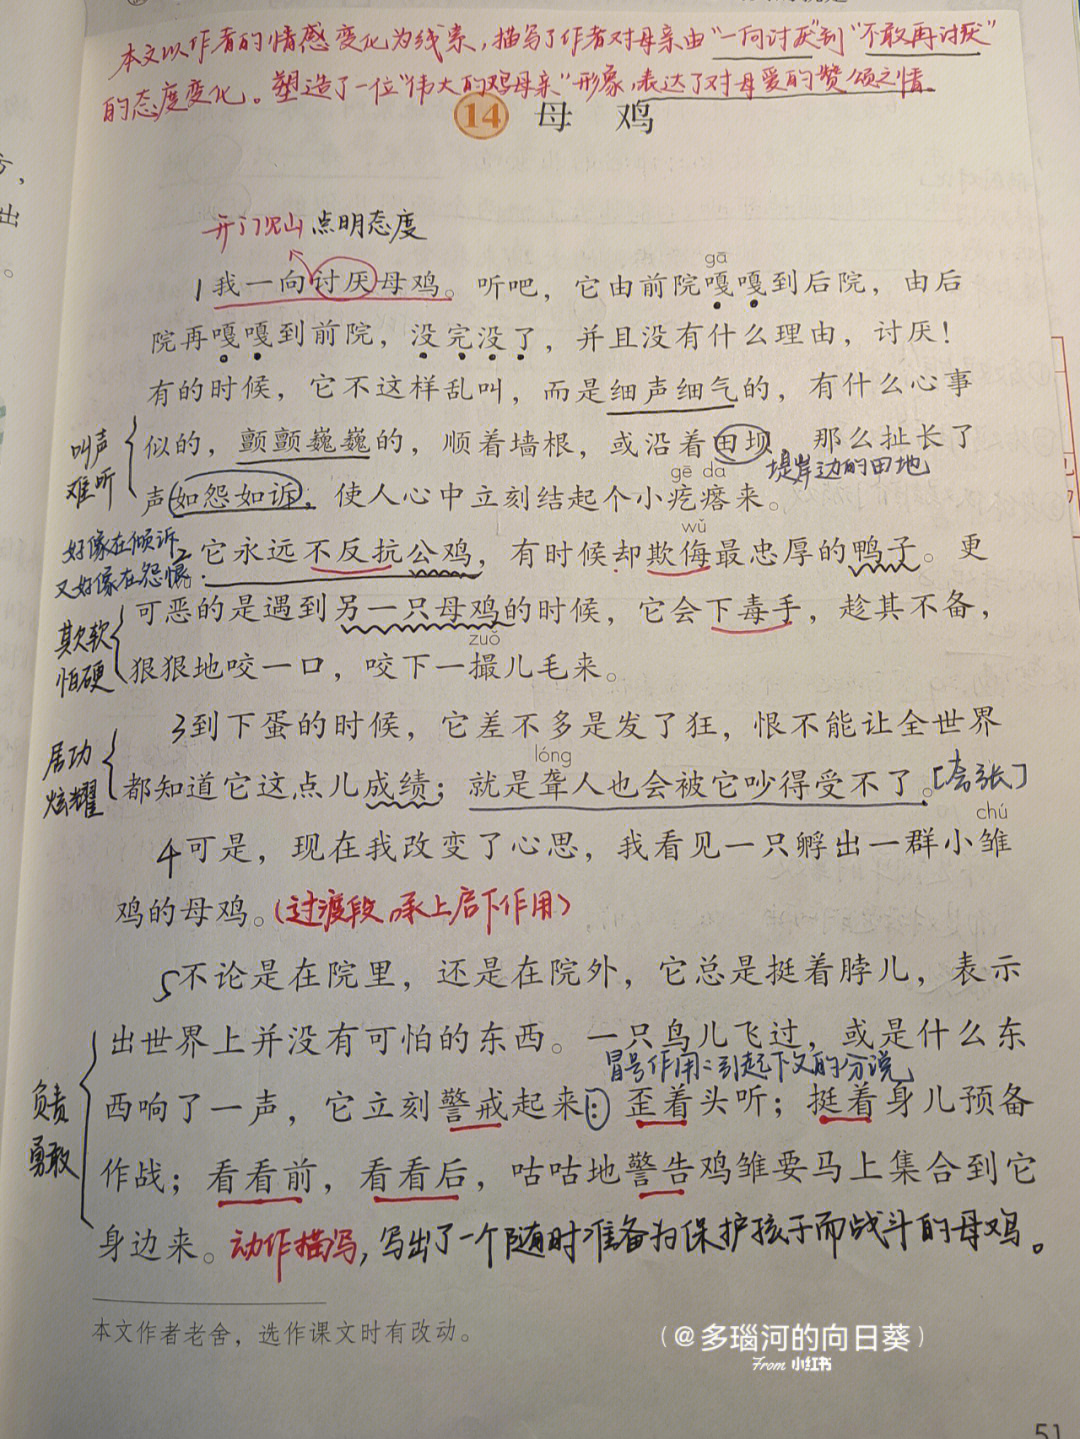 本文以作者的情感变化为线索,描写了作者对母亲由“一向讨厌”到“不敢再讨厌”
的态度变化。塑造了一位“伟大的鸡母亲”形象,表达了对母爱的赞颂之情。
14 母 鸡
开门见山 点明态度
gā
1我一向讨厌母鸡。听吧,它由前院嘎嘎到后院,由后
院再嘎嘎到前院,没完没了,并且没有什么理由,讨厌!
有的时候,它不这样乱叫,而是细声细气的,有什么心事
叫声
难听
似的,颤颤巍巍的,顺着墙根,或沿着田坝 那么扯长了
堤岸边的田地
gē da
声如怨如诉,使人心中立刻结起个小疙瘩来。
好像在倾诉
又好像在怨恨。
wǔ
2它永远不反抗公鸡,有时候却欺侮最忠厚的鸭子。更
欺软
怕硬
可恶的是遇到另一只母鸡的时候,它会下毒手,趁其不备,
zuǒ
狠狠地咬一口,咬下一撮儿毛来。
居功
炫耀
3到下蛋的时候,它差不多是发了狂,恨不能让全世界
lóng
都知道它这点儿成绩;就是聋人也会被它吵得受不了。[夸张]
chú
4可是,现在我改变了心思,我看见一只孵出一群小雏
鸡的母鸡。(过渡段,承上启下作用)
5不论是在院里,还是在院外,它总是挺着脖儿,表示
出世界上并没有可怕的东西。一只鸟儿飞过,或是什么东
冒号作用:引起下文的分说
负责
勇敢
西响了一声,它立刻警戒起来:歪着头听;挺着身儿预备
作战;看看前,看看后,咕咕地警告鸡雏要马上集合到它
身边来。动作描写,写出了一个随时准备为保护孩子而战斗的母鸡。
本文作者老舍,选作课文时有改动。
(@多瑙河的向日葵)
From 小红书
51